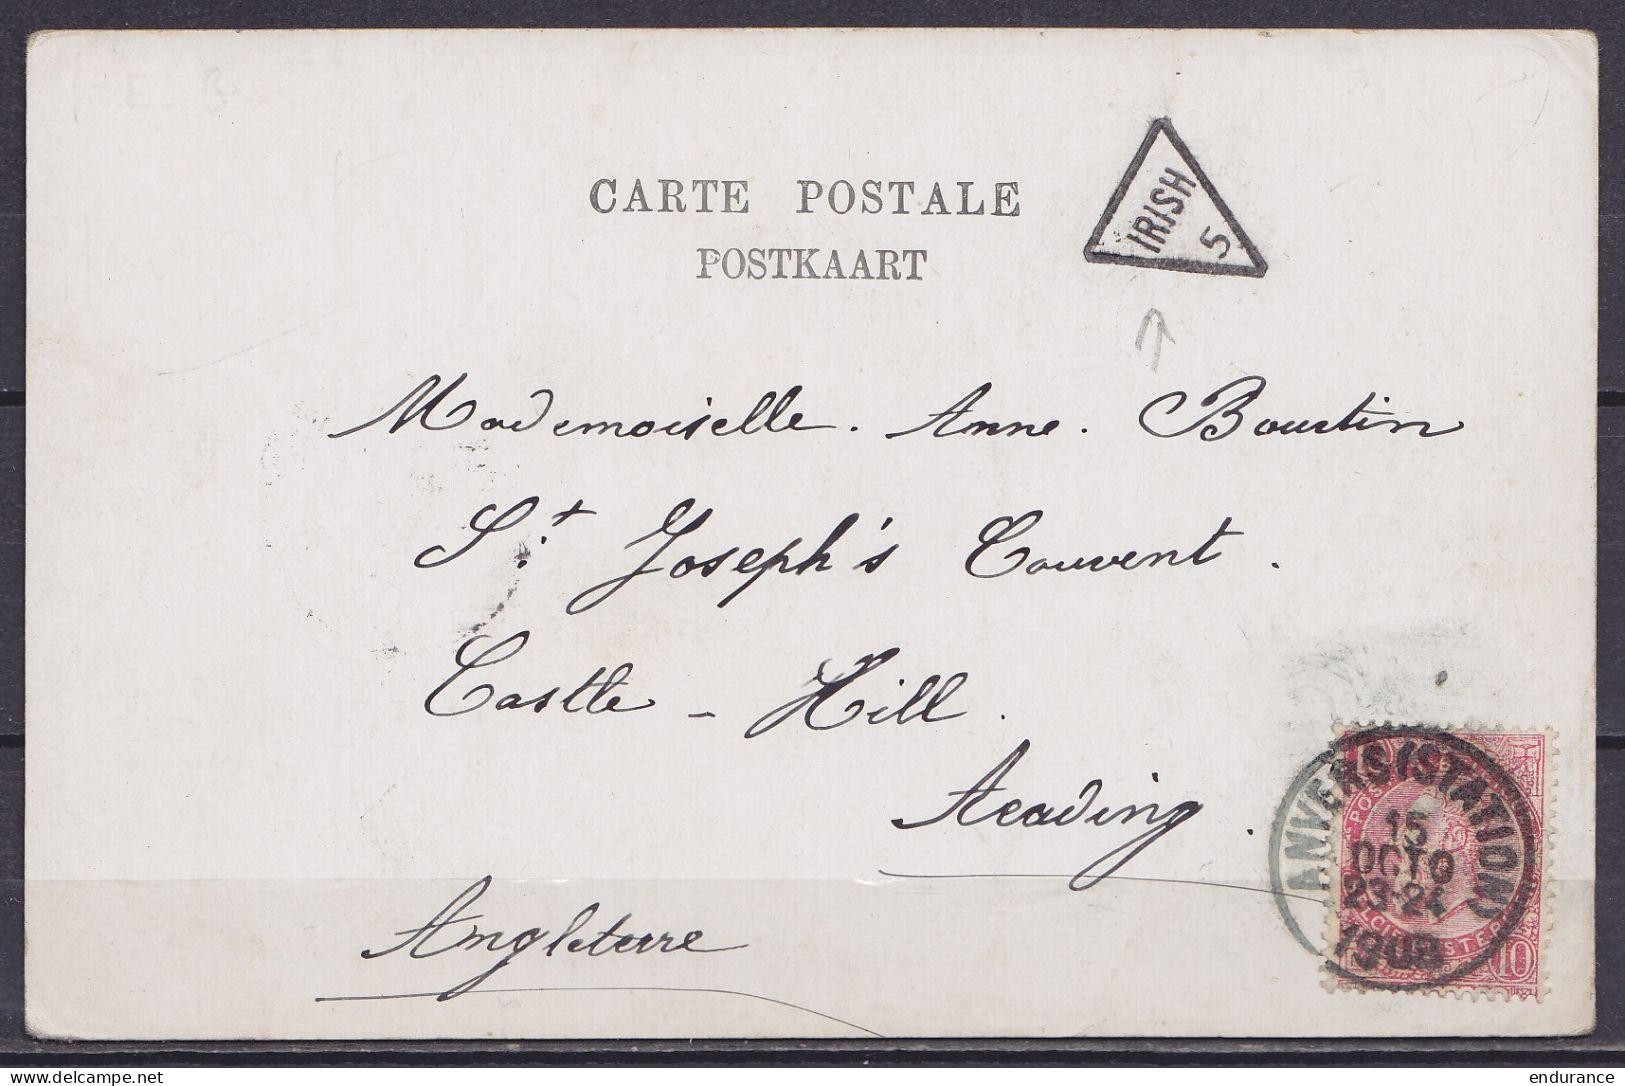 CARTE POSTALE
POSTKAART
IRISH
5
Mademoiselle. Anne. Bourtin
St. Joseph's Convent.
Castle - Hill.
Reading.
Angleterre
ANVERS (STATION)
15
OCTO
23-24
1903
10
delcampe.net
endurance